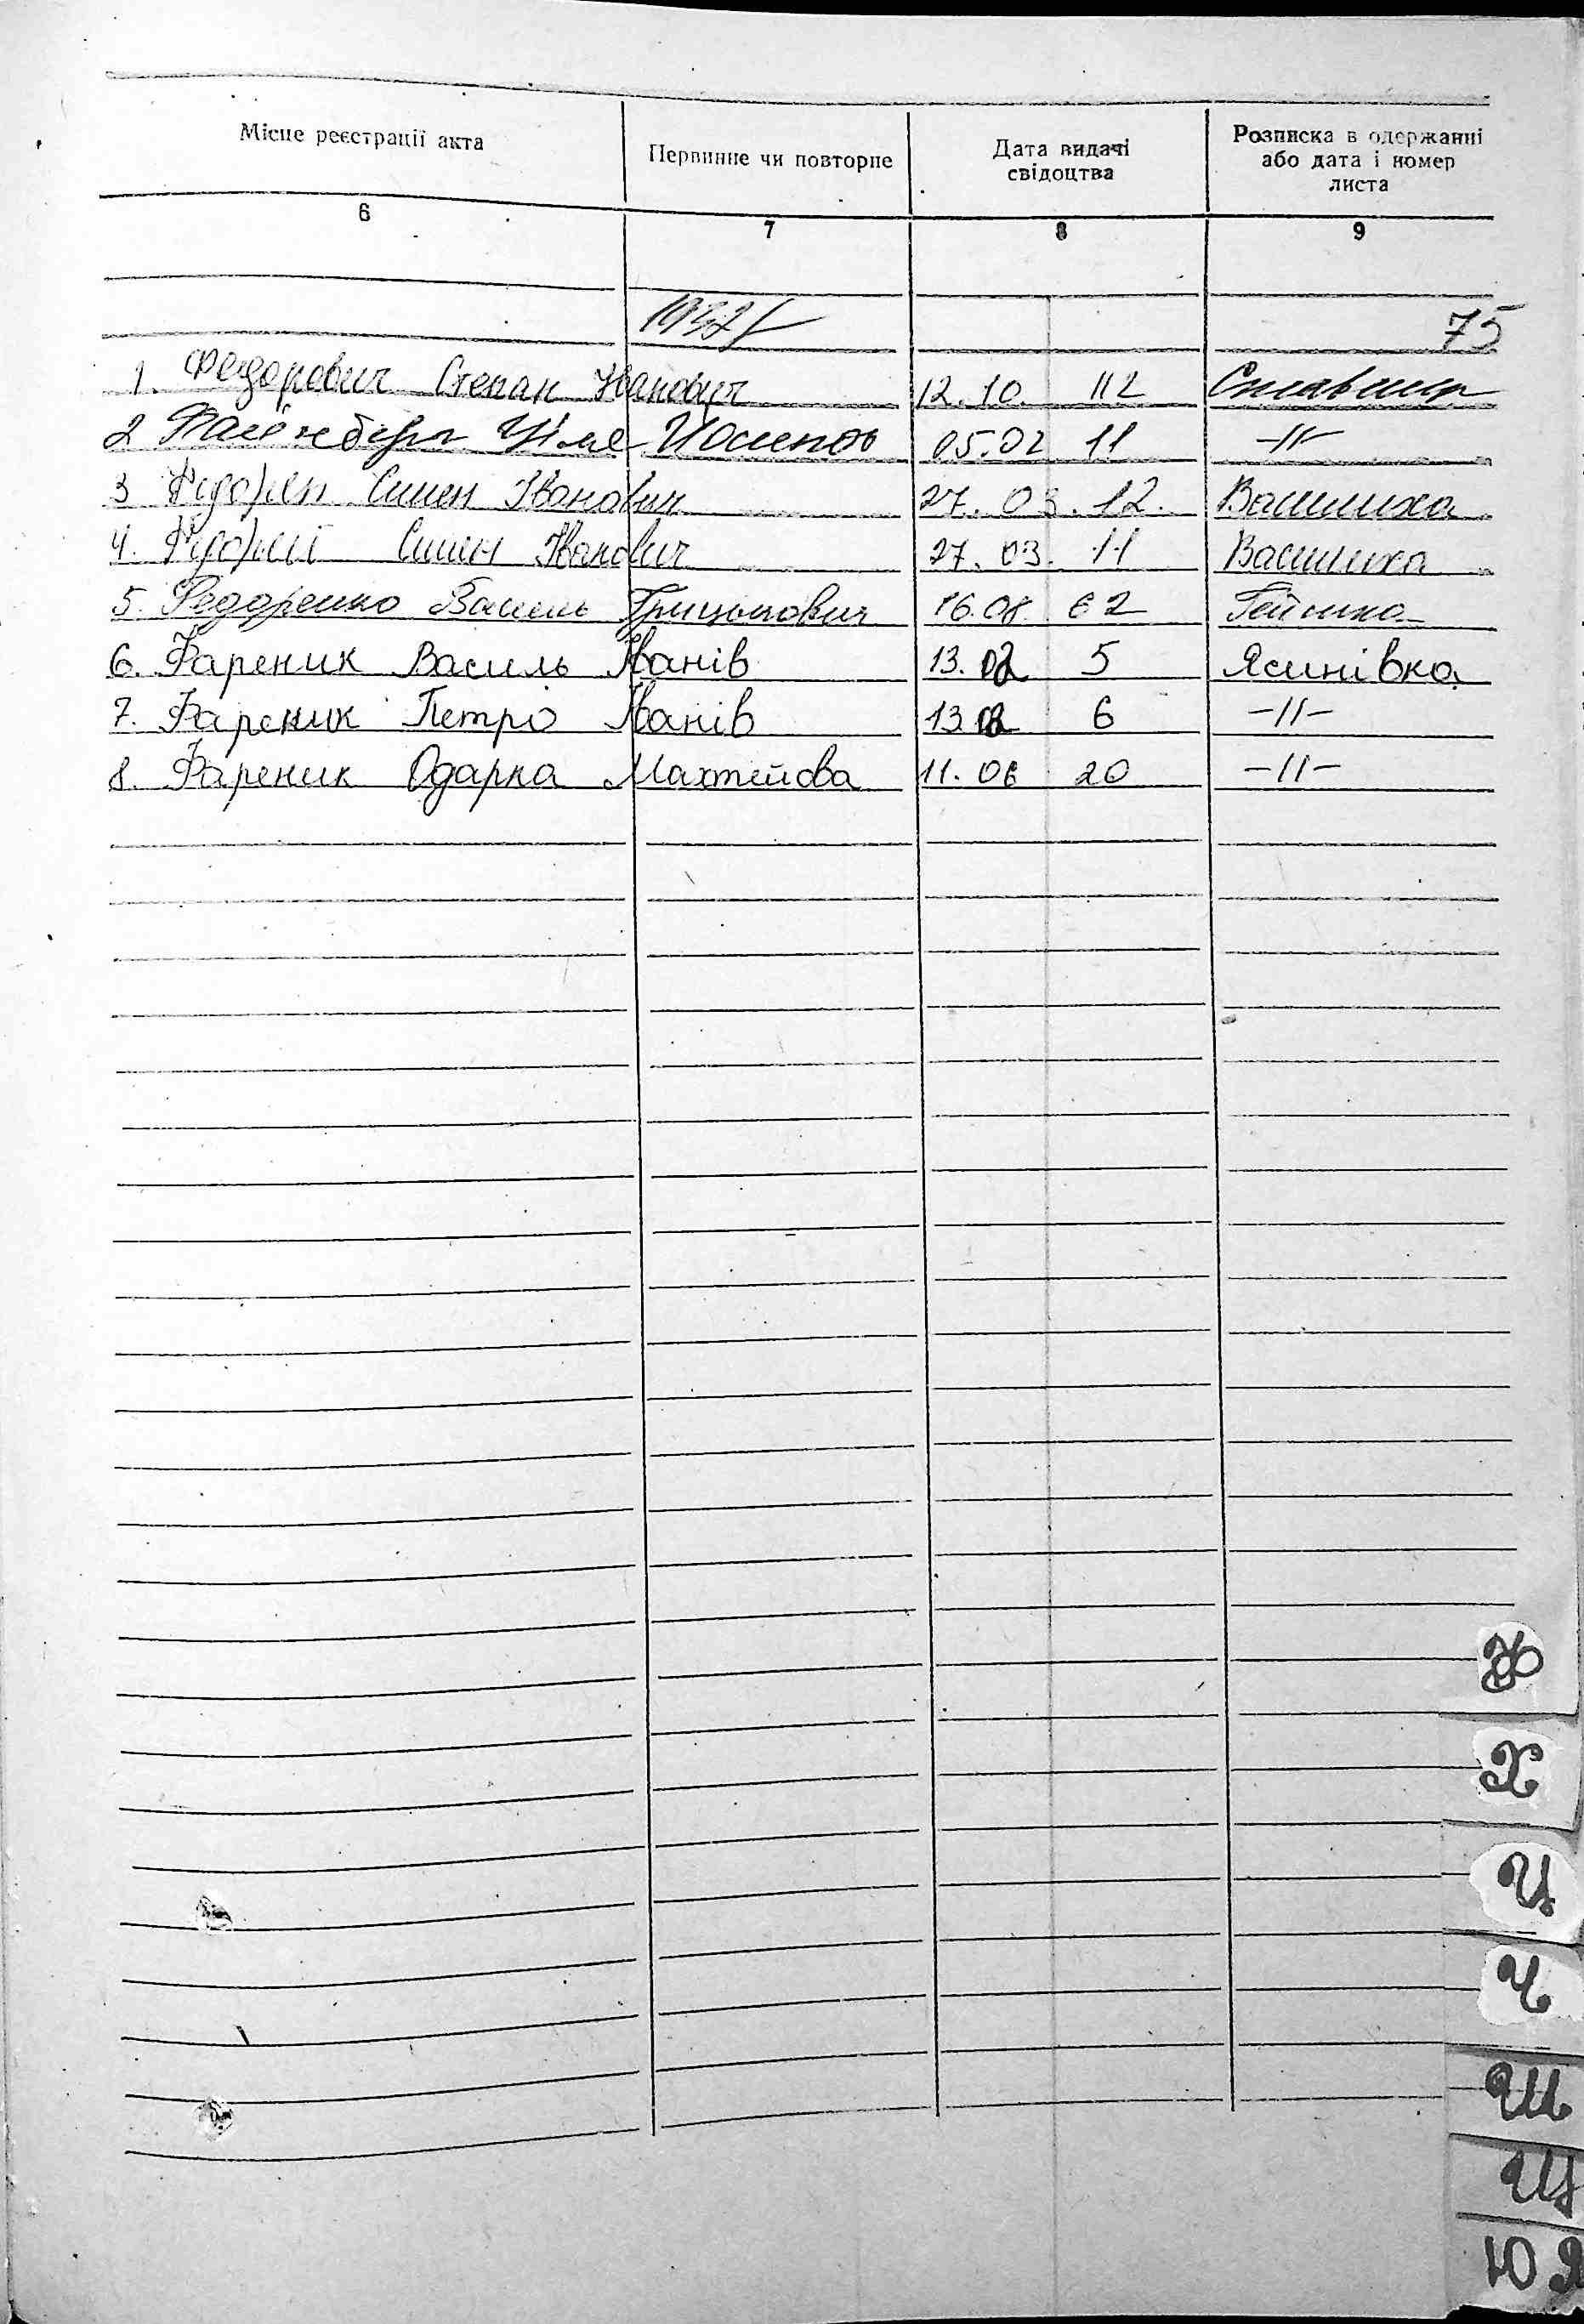 Місце реєстрації акта Первинне чи повторне Дата видачі свідоцтва Розписка в одержанні або дата і номер листа
6 7 8 9
1937 75
1. Федорович Степан Іванович 12.10. 112 Ставище
2 Цілля Йосипов 05.02 11 -11-
3 Семен Іванович 27.03.12. Василиха
4. Семен Іванович 27.03. 11 Василиха
5. Федоренко Василь Грицькович 16.08. 62 Гейсиха
6. Фареник Василь Іванів 13.02 5 Ясинівка
7. Фареник Петро Іванів 13.02 6 -11-
8. Фареник Одарка Махтейова 11.06 20 -11-
Ф
Х
Ц
Ч
Ш
Щ
Ю Я